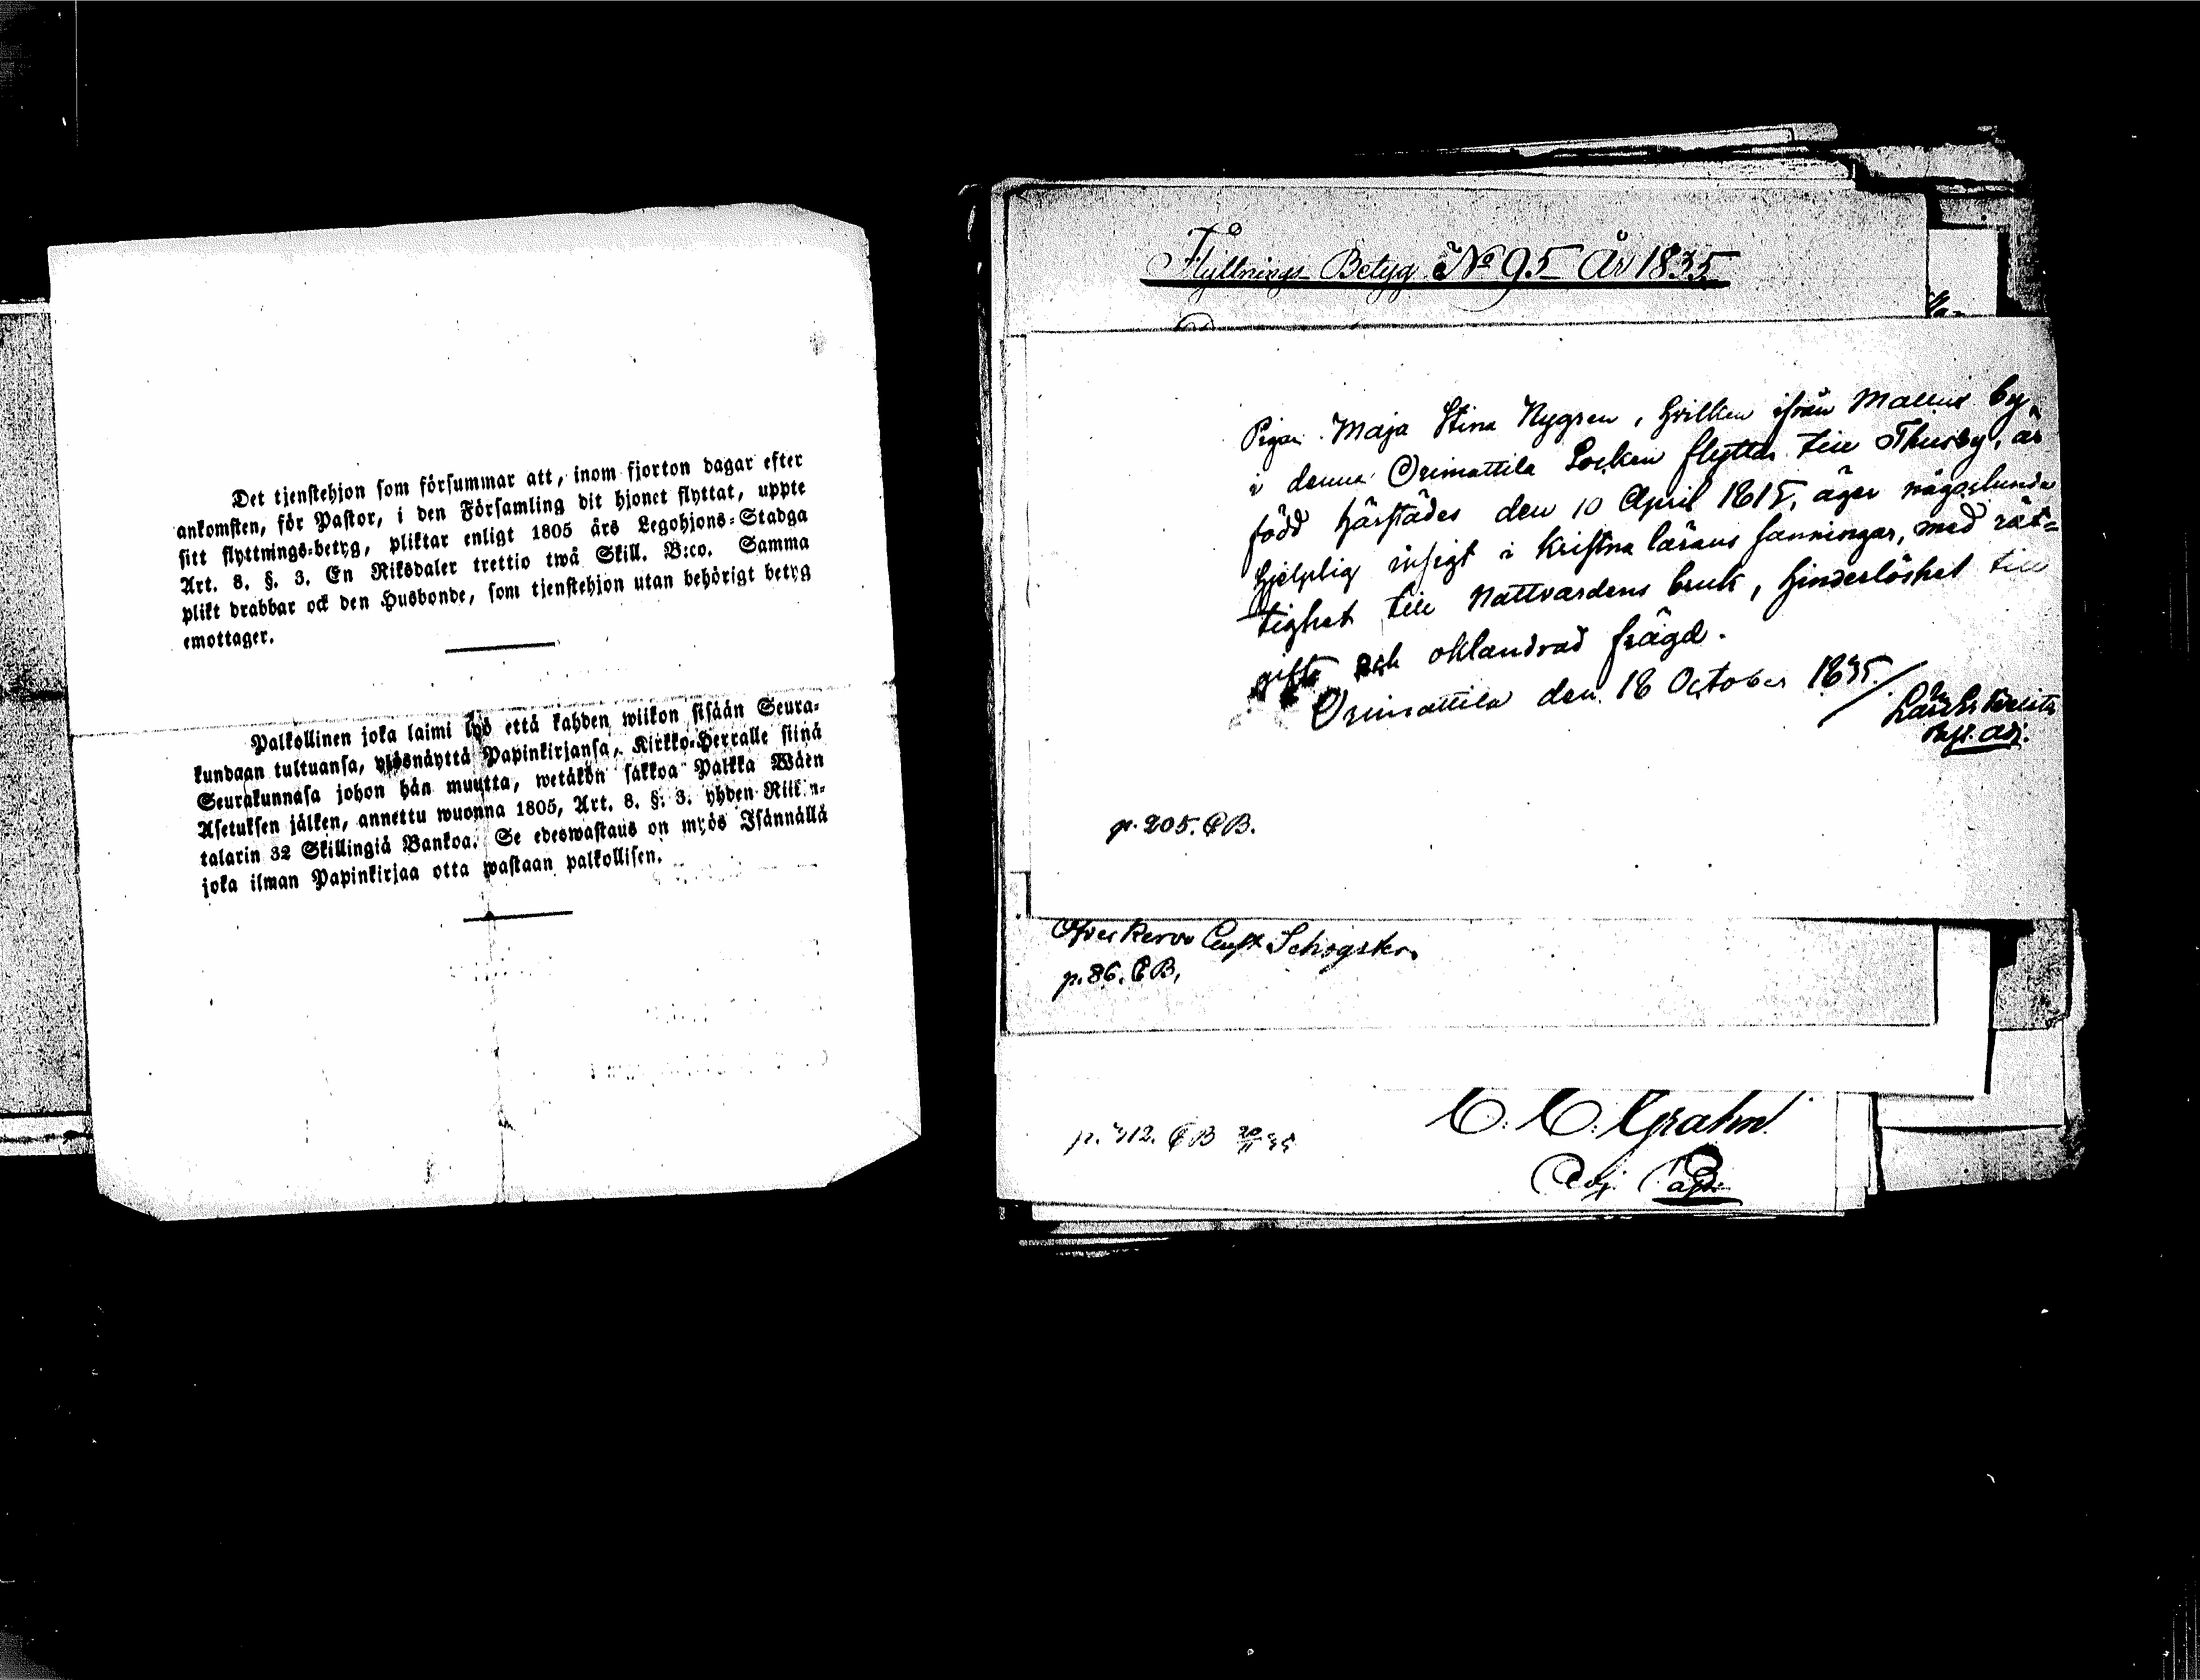 Det tjenstehjon som försummar att, inom fjorton dagar efter
ankomsten, för Pastor, i den Församling dit hjonet flyttat, uppte
sitt flyttnings-betyg, pliktar enligt 1805 års Legohjons-Stadga
Art. 8. §. 3. En Riksdaler trettio twå Skill. B:co. Samma
plikt drabbar ock den Husbonde, som tjenstehjon utan behörigt betyg
emottager.
Palkollinen joka laimi lyö että kahden wiikon sisään Seura-
kundaan tultuansa, ylösnäyttä Papinkirjansa, Kirkko-Herralle siinä
Seurakunnasa johon hän muutta, wetäkön sakkoa Palkka Wäen
Asetuksen jälken, annettu wuonna 1805, Art. 8. §. 3. yhden Riik n-
talarin 32 Skillingiä Bankoa. Se edeswastaus on myös Isännällä
joka ilman Papinkirjaa otta wastaan palkollisen.
Flyttnings Betyg No 95 År 1835
Pigan Maja Stina Nygren, hvilken ifrån Mallus by,
i denna Orimattila Socken flyttar till Thusby, är
född härstädes den 10 April 1815, äger någorlunda
hjelplig insigt i Kristna lärans sanningar, med rät-
tighet till Nattvardens bruk, hinderlöshet till
gifte och oklandrad frägd.
Orimattila den 18 October 1835.
Past. Adj.
p. 205. CB.
Ofver Kervo Schogster
p. 86. CB.
p. 312. CB 20/11 35
C. C. Grahn
Adj. Past.